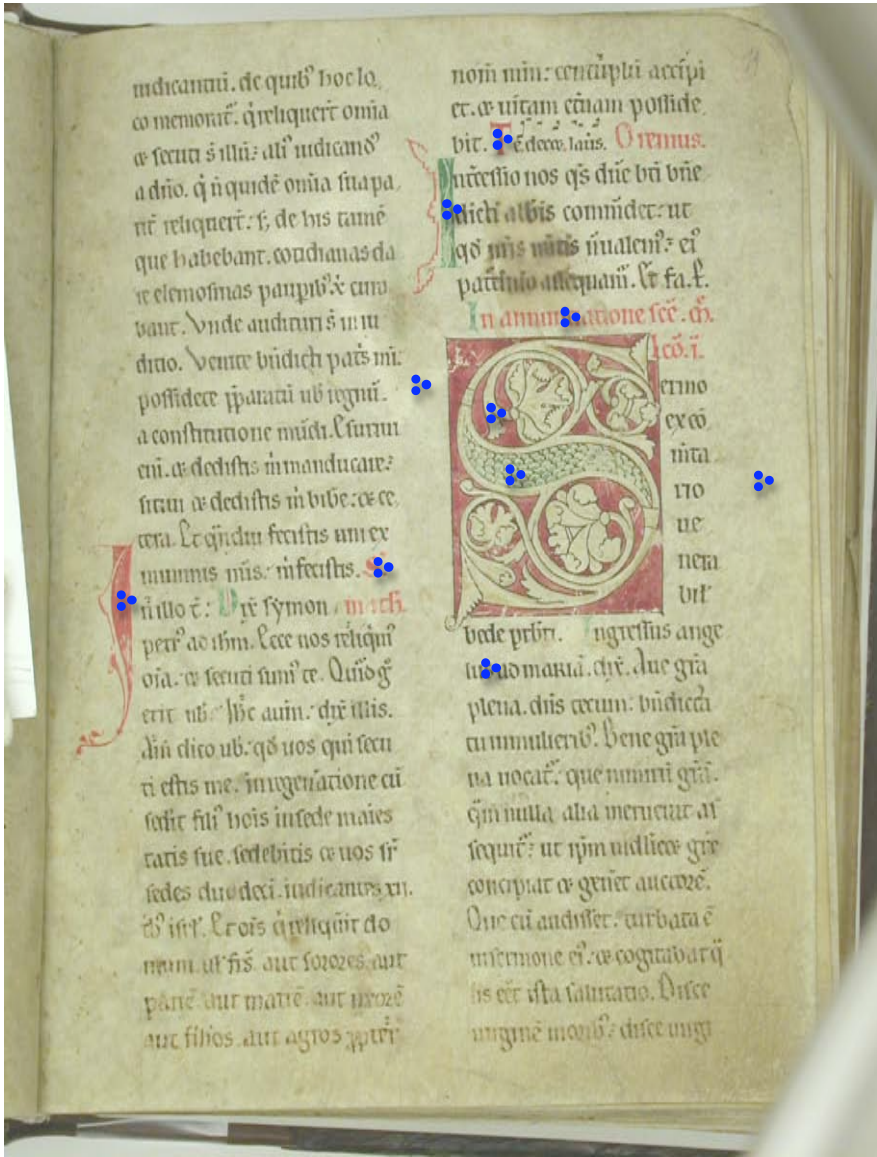 iudicantiũ. de quibꝰ hoc lo,
co memorat᷑. q̇ reliquer̃t om̃ia
⁊ secuti s̃ illũ: aliꝰ iudicandoꝰ
a dño. q̇ ñ quidẽ om̃ia sua pa,
rit̃ reliquer̃t: s; de his tamẽ
que habebant. cotidianas da
re elemosinas paupibꝰ. x̃ cura
bant. Vnde audituri s̃ in iu
ditio. Venite bñdicti pat̃s mi:
possidete p̃paratũ uob̃ regnũ.
a constitutione mũdi. Esuriui
eni. ⁊ dedistis m̃ manducare:
sitiui ⁊ dedistis m̃ bibe: ⁊ ce,
tera. Et q̃ndiu fecistis uni ex
minimis m̃is: m̃ fecistis.
IN illo t̃: Dix̃ symon math.
petrꝰ ad ihm. Ecce nos reliq̃mꝰ
oĩa. ⁊ secuti sumꝰ te. Quid g̊
erit nob̃. Ihc̃ autm̃. dix̃ illis.
Am̃ dico uob̃. qđ uos qui secu
ti estis me. in regen̾atione cũ
sedit̃ filiꝰ hoĩs in sede maies
tatis sue. sedebitis ⁊ uos sr̃
sedes duodeci. iudicantes xii.
tb̃ꝰ isrl̃. Et oĩs q̇ reliquit̃ do
mum. ul̃ fr̃s. aut sorores. aut
patrẽ aut matrẽ. aut uxorẽ
aut filios. aut agros ꝓpter̃
nom̃ m̃m: centuplũ accipi
et. ⁊ uitam et̃nam posside,
bit. Te decet laus. Oremus.
Int̃cessio nos q̃s dñe bt̃i bñe
dicti abb̃is com̃ndet: ut
qđ m̃is m̃itis ñ ualemꝰ: eiꝰ
pat̃cinio assequam̃. Et fa. E.
In annuntiatione sc̃e. m̃.
Lcõ. i.
Sermo
ex cõ
m̃ta
rio
ue
nera
bilꝰ
bede prb̃ri. Ingressus ange
maria. dix̃. Aue gr̃a
plena. dñs tecum: bñdicta
tu in mulieribꝰ. Bene gr̃a ple
na uocat᷑. que nimirũ gr̃ã.
q̃m nulla alia meruerat as
sequit᷑: ut ip̃m uidlicet gr̃e
concipiat ⁊ gen̾et auctorẽ.
Que cũ audisset. turbata ẽ
in sermone eiꝰ. ⁊ cogitabat q̃
lis eẽt ista salutatio. Disce
uirginẽ moribꝰ: disce uirgi